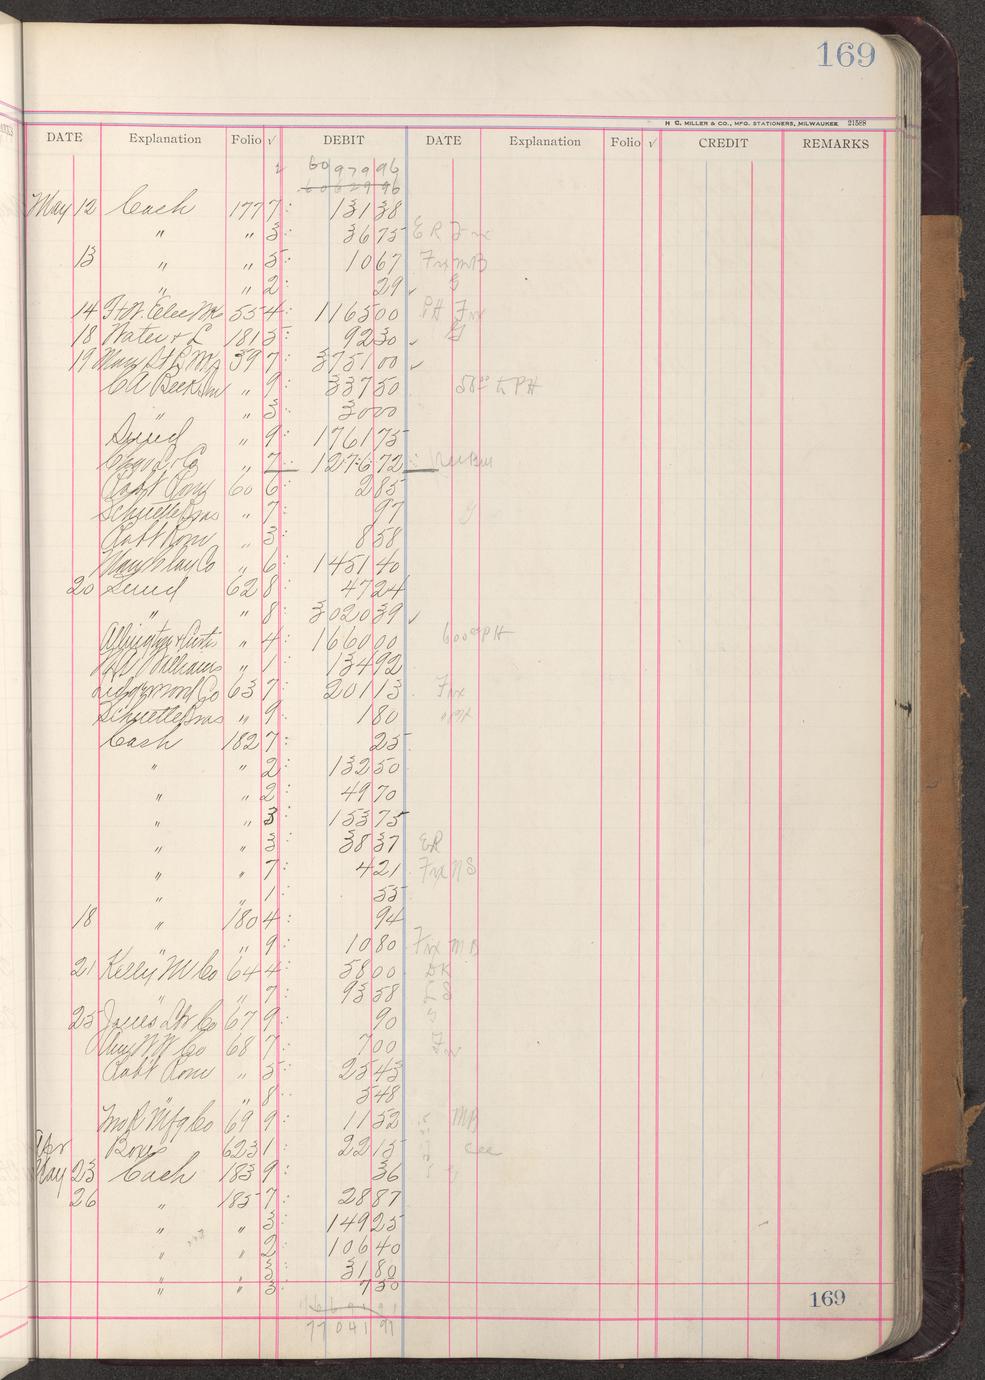 169
H. C. MILLER & CO., MFG. STATIONERS, MILWAUKEE 21588
DATE Explanation Folio √ DEBIT DATE Explanation Folio √ CREDIT REMARKS
60 979 96
60 629 96
May 12 Cash 177 7: 131 38
" " 3: 36 75 ER Fnx
13 " " 5: 10 67 Fnx MB
" " 2: 29 ✓ G
14 Ft W. Elec Wks 55 4: 1165 00 PH Fnx
18 Water & L 181 5: 92 30 ✓ G
19 39 7: 3751 00 ✓
CA Beckm " 9: 337 50 PH
" " 3: 30 00
Sund " 9: 1761 75
& Co " 7: 1276 72
Robt Rom 60 6: 2 85
Schuette Bros " 7: 97 G
Robt Rom " 3: 8 58
Marsh Hay Co " 6: 1451 40
20 Sund 62 8: 47 24
" " 8: 3020 39 ✓
Allington & Curtis " 4: 1660 00 600 PH
Williams " 1: 134 92
Lidgerwood Co 63 7: 201 13 Fnx
Schuette Bros " 9: 1 80 "
Cash 182 7: 25
" " 2: 132 50
" " 2: 49 70
" " 3: 153 75
" " 3: 38 37 ER
" " 7: 4 21 Fnx NS
" " 1: 55
18 " 180 4: 94
" " 9: 10 80 Fnx MB
21 Kelly M Co 64 4: 58 00 DK
" " 7: 93 58 S
25 Jones Lbr Co 67 9: 90
Am W W Co 68 7: 7 00 Fnx
Robt Rom " 5: 25 43
" " 8: 5 48
Jno R Mfg Co 69 9: 11 52 MB
Apr Boxes 623 1: 22 15
May 23 Cash 183 9: 36
26 " 185 7: 28 87
" " 3: 149 25
" " 2: 106 40
" " 3: 31 80
" " 3: 7 50
169
77 041 91